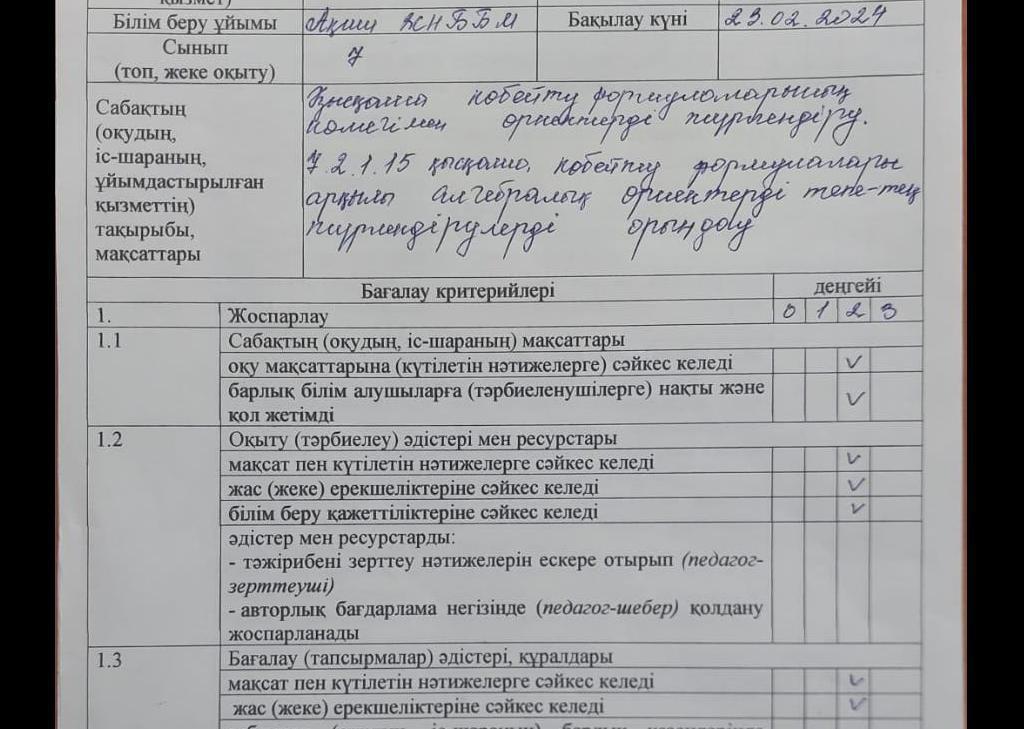 қызмет)
Білім беру ұйымы Ақши ЖНББМ Бақылау күні 23.02.2024
Сынып 7
(топ, жеке оқыту)
Сабақтың
(оқудың,
іс-шараның,
ұйымдастырылған
қызметтің)
тақырыбы,
мақсаттары
Қысқаша көбейту формулаларының
көмегімен өрнектерді түрлендіру.
7.2.1.15 қысқаша көбейту формулалары
арқылы алгебралық өрнектерді тепе-тең
түрлендірулерді орындау
Бағалау критерийлері деңгейі
1. Жоспарлау 0 1 2 3
1.1 Сабақтың (оқудың, іс-шараның) мақсаттары
оқу мақсаттарына (күтілетін нәтижелерге) сәйкес келеді ✓
барлық білім алушыларға (тәрбиеленушілерге) нақты және
қол жетімді ✓
1.2 Оқыту (тәрбиелеу) әдістері мен ресурстары
мақсат пен күтілетін нәтижелерге сәйкес келеді ✓
жас (жеке) ерекшеліктеріне сәйкес келеді ✓
білім беру қажеттіліктеріне сәйкес келеді ✓
әдістер мен ресурстарды:
- тәжірибені зерттеу нәтижелерін ескере отырып (педагог-
зерттеуші)
- авторлық бағдарлама негізінде (педагог-шебер) қолдану
жоспарланады
1.3 Бағалау (тапсырмалар) әдістері, құралдары
мақсат пен күтілетін нәтижелерге сәйкес келеді ✓
жас (жеке) ерекшеліктеріне сәйкес келеді ✓